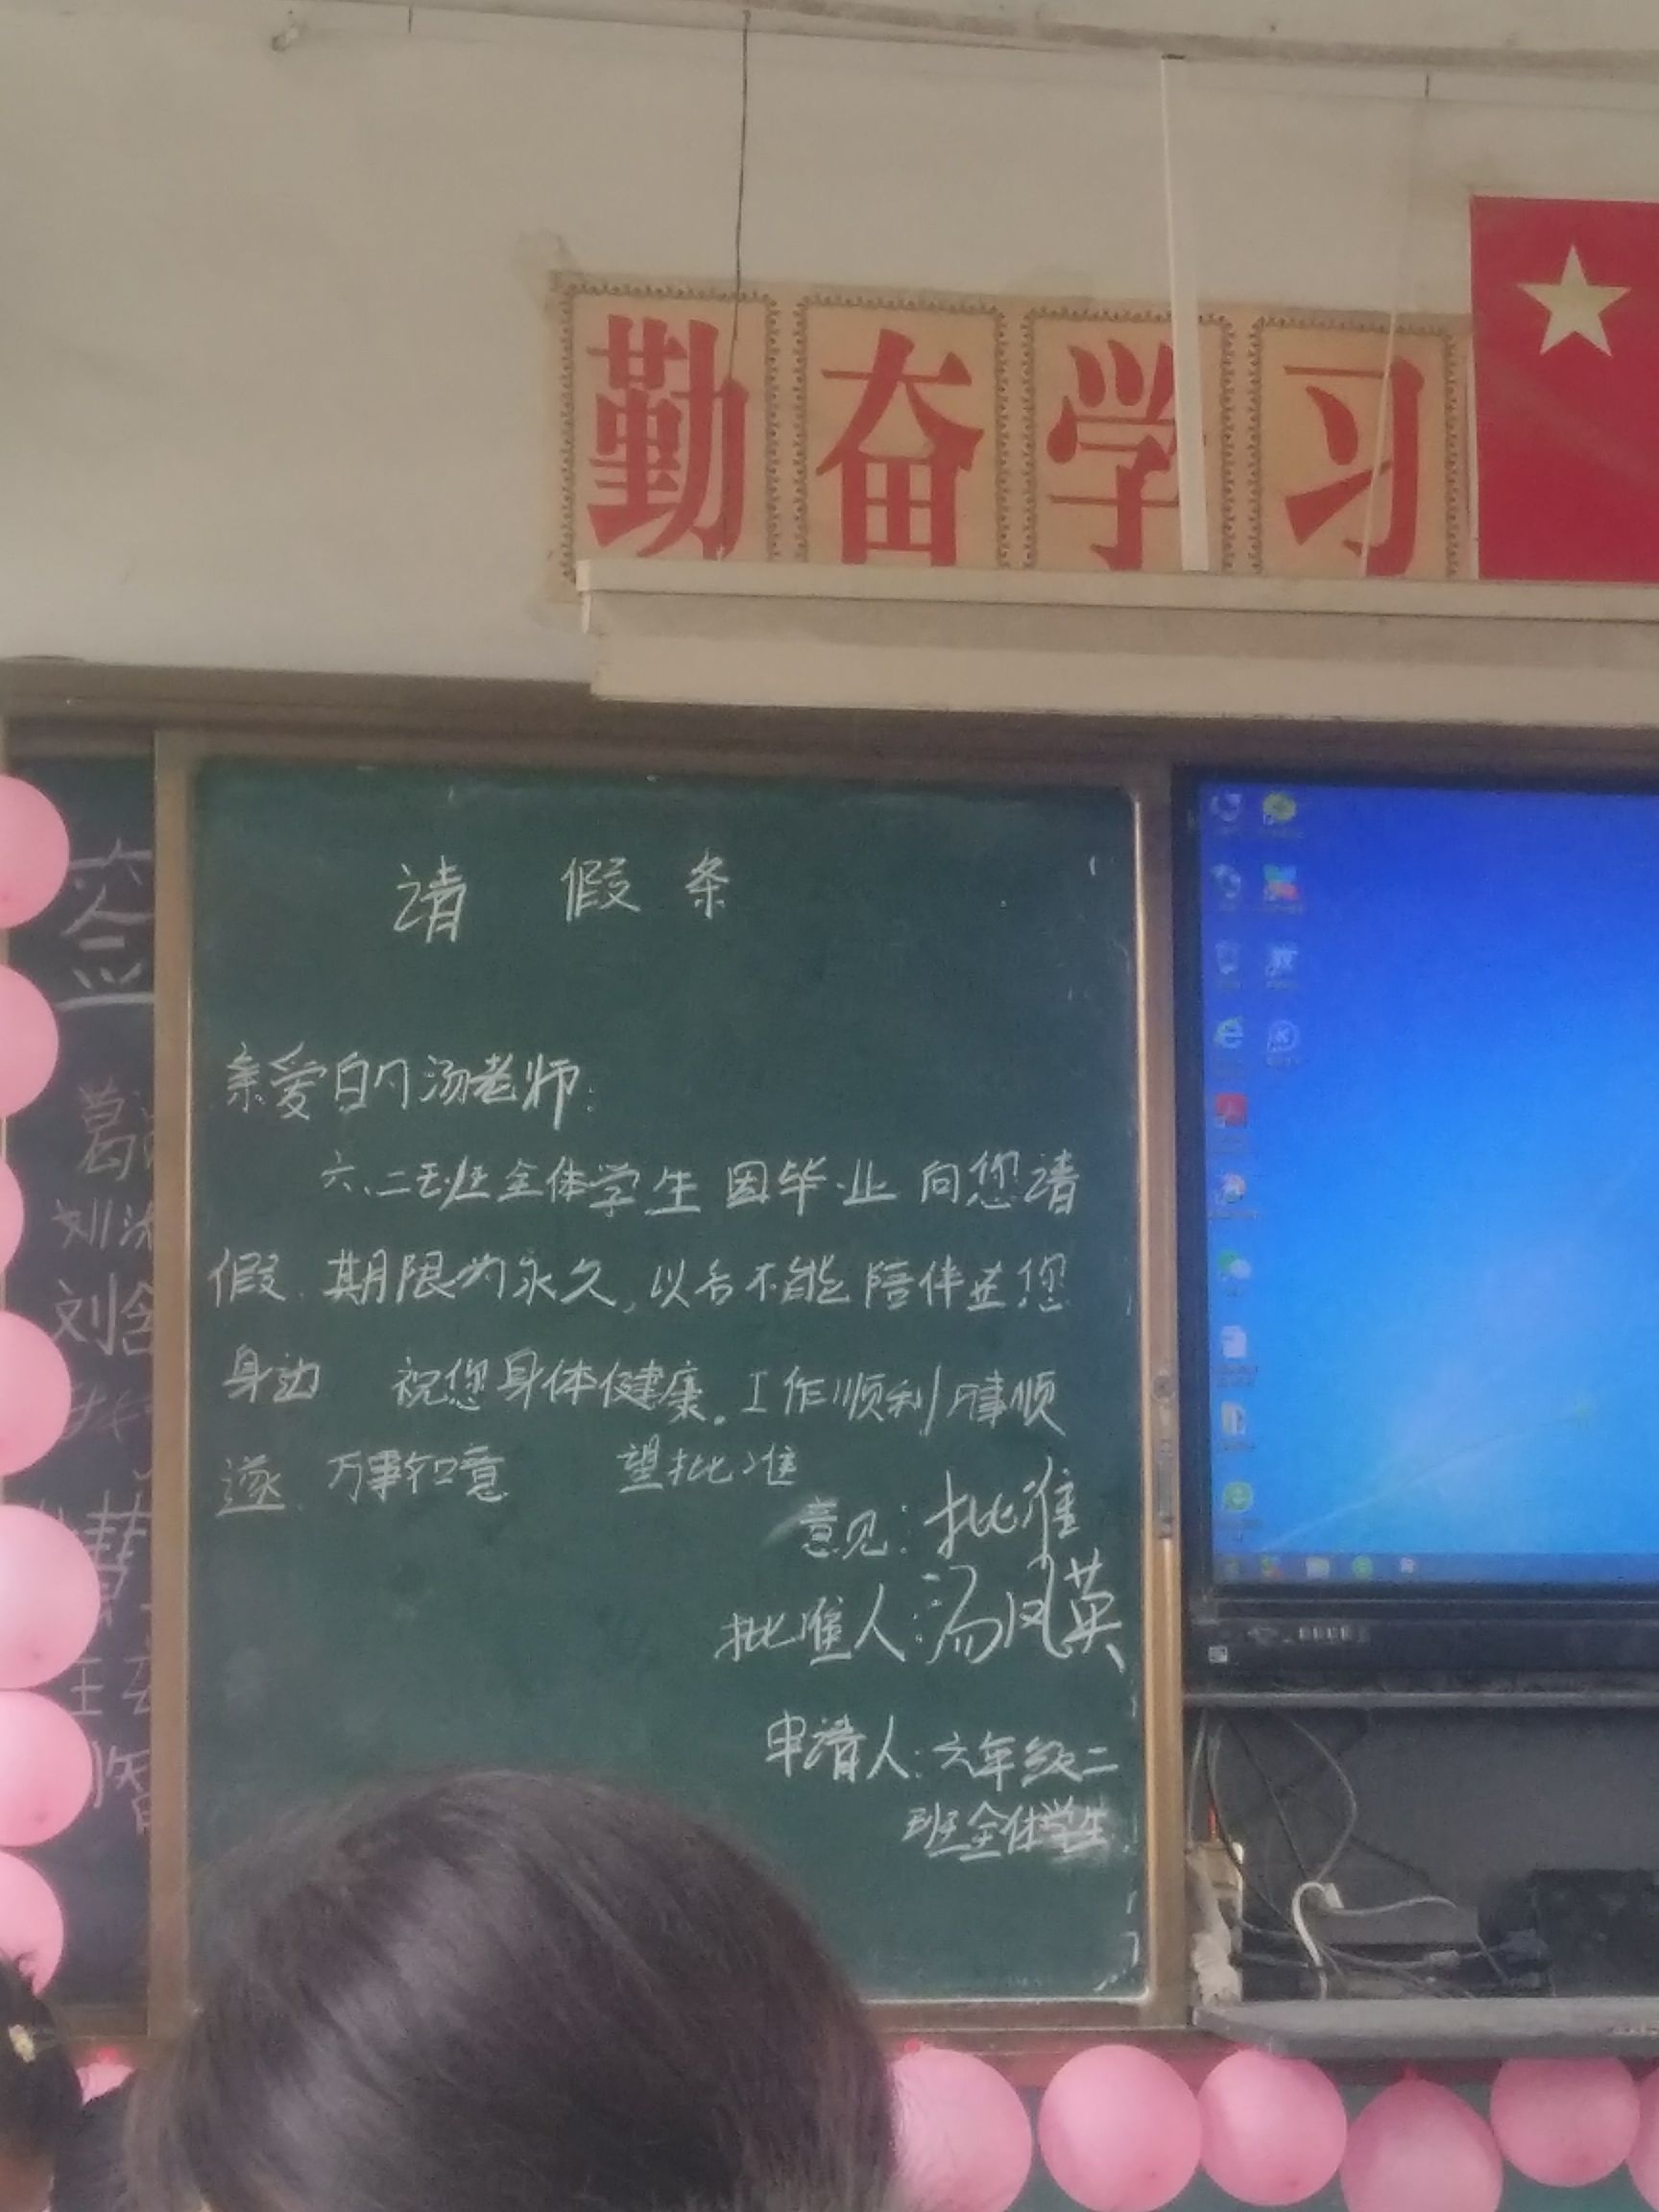 勤奋学习
请假条
亲爱的汤老师:
六.二班全体学生因毕业向您请
假.期限为永久,以后不能陪伴在您
身边 祝您身体健康。工作顺利 事顺
遂.万事如意 望批准
意见:批准
批准人:汤凤英
申请人:六年级二
班全体学生
签
葛
刘
刘含
慧
王
智